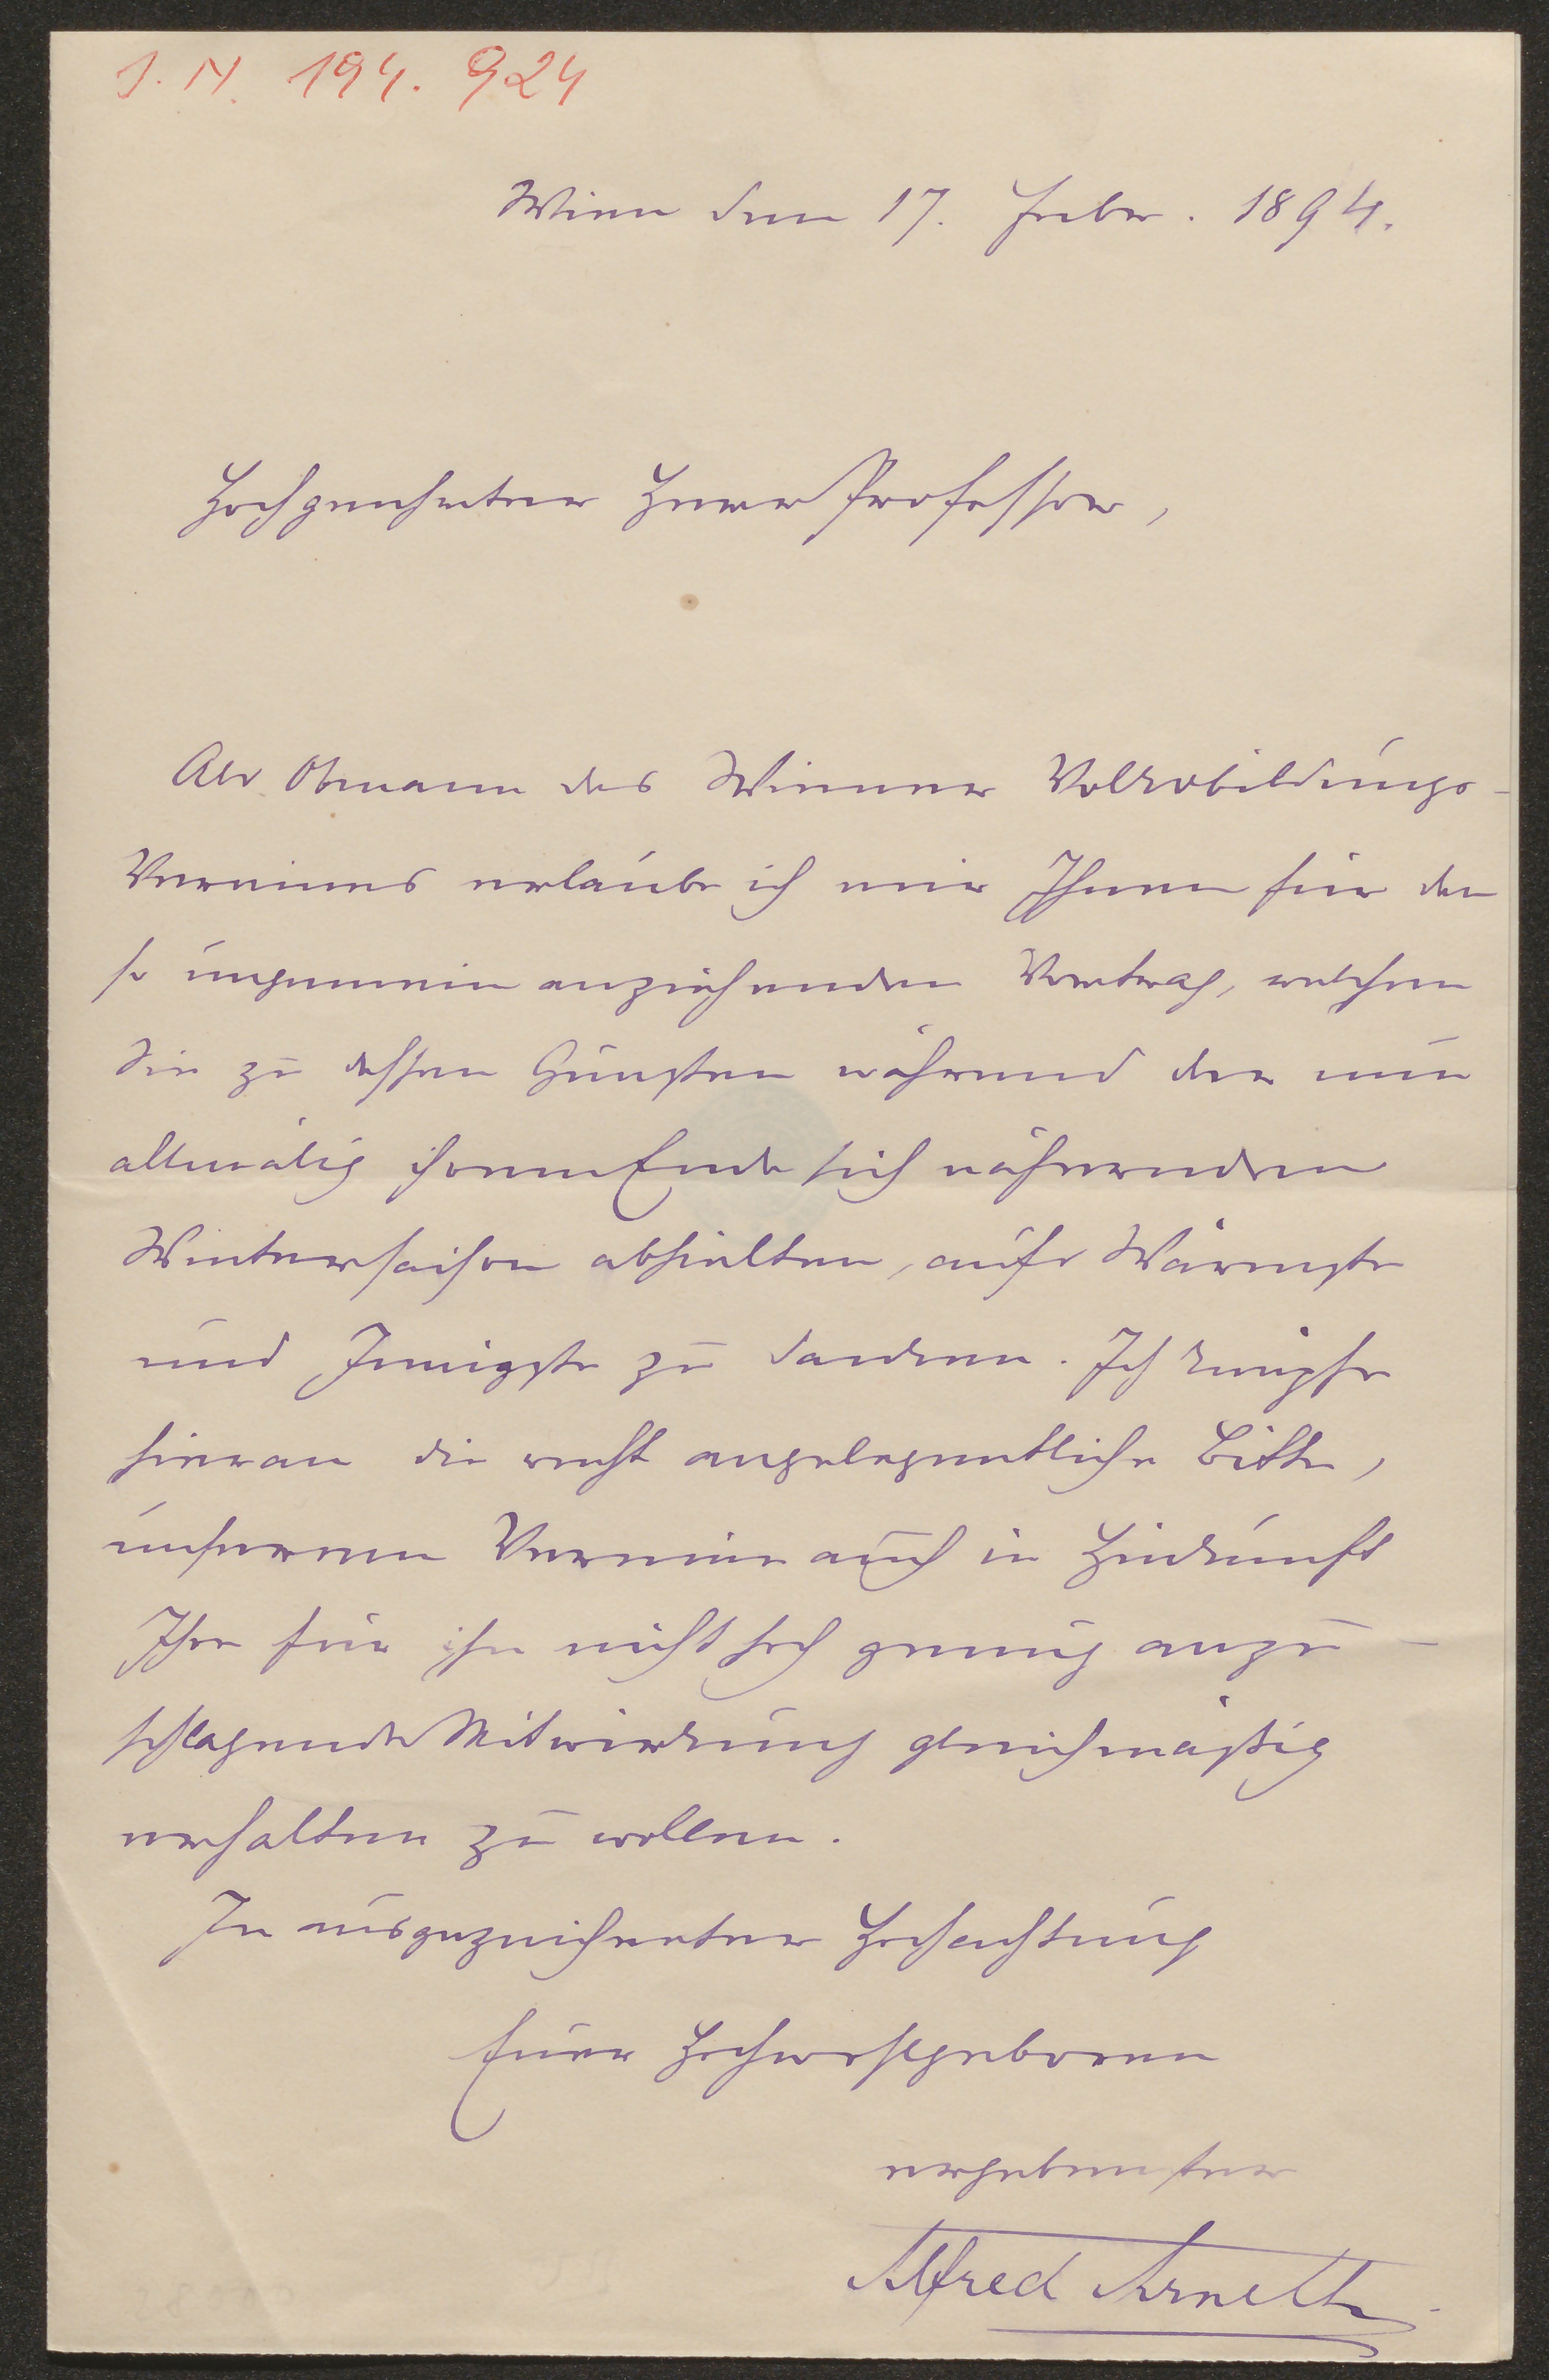 J. N. 194.924
Wien den 17. Febr. 1894.
Hochgeehrter Herr Professor,
Als Obmann des Wiener Volksbildungs-
Vereines erlaube ich mir Ihnen für den
so ungemein anziehenden Vortrag, welchen
Sie zu dessen Gunsten während der nun
allmälig ihrem Ende sich nähernden
Wintersaison abhielten, aufs Wärmste
und Innigste zu danken. Ich knüpfe
hieran die recht angelegentliche Bitte,
unserem Vereine auch in Hinkunft
Ihre für ihn nicht hoch genug anzu-
schlagende Mitwirkung gleichmäßig
erhalten zu wollen.
In ausgezeichneter Hochachtung
Euer Hochwohlgeboren
ergebenster
Alfred Arneth